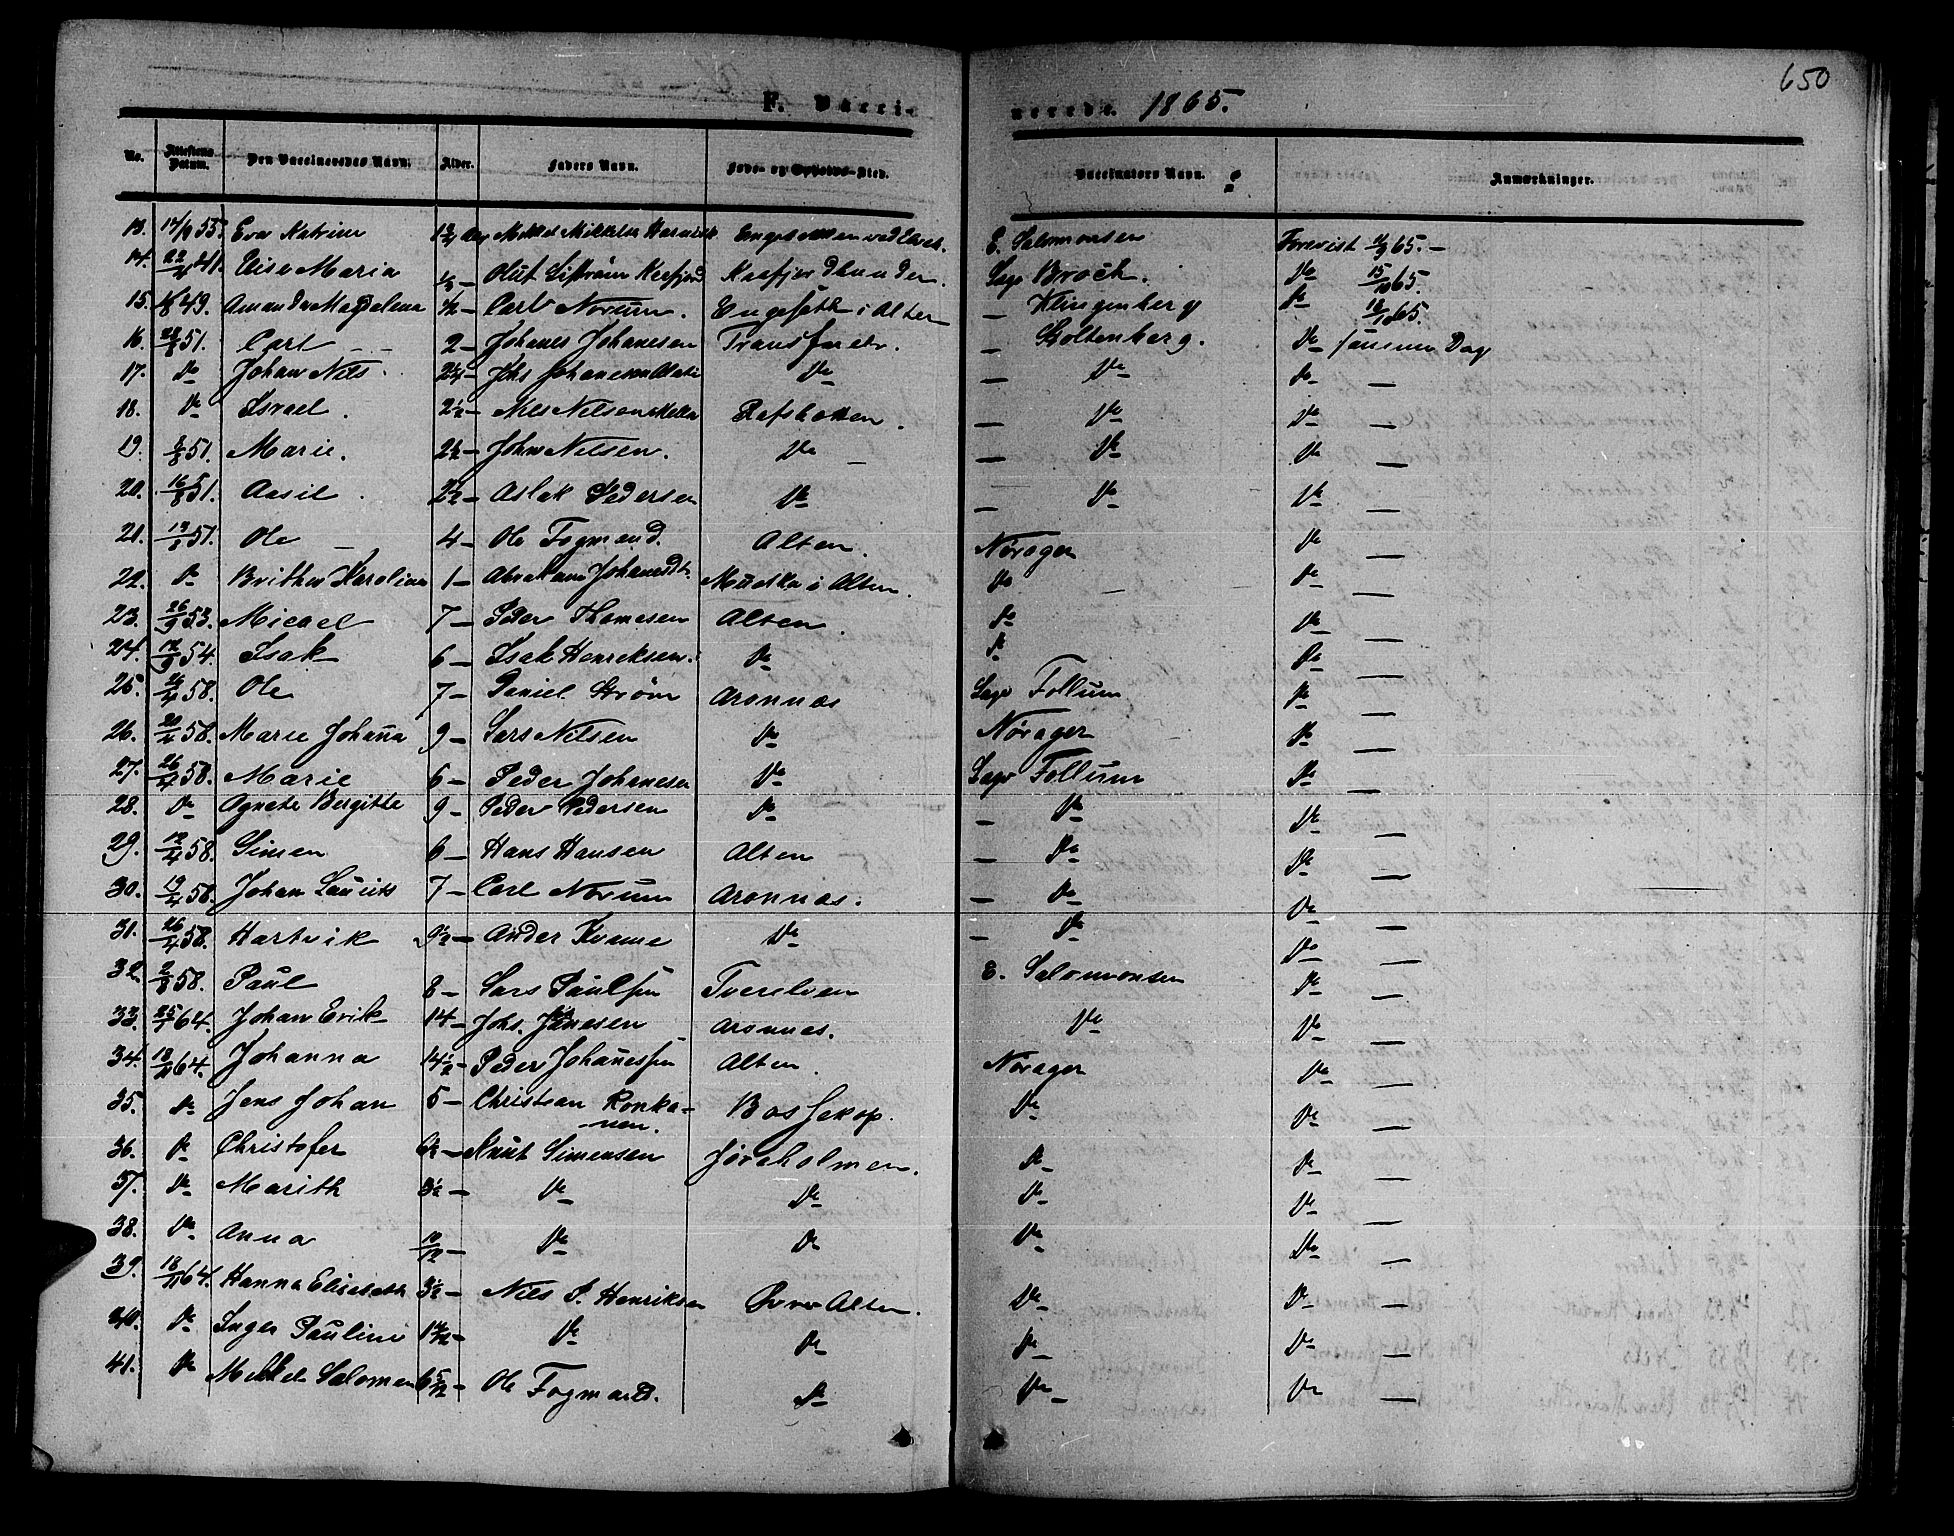 650
F. Vacci- nerede. 1865.
No. Attestens Datum. Den Vaccineredes Navn. Alder. Faders Navn. Føde- og Opholds-Sted. Vaccinators Navn. Anmærkninger.
13. 55. Eva Katrine E. Salomonsen Forevist 65. –
14. 22 41. Elise Maria Oluf Kaafjordbunden. Sagv Broch. Do 15/10 65.
15. 49. Amanda Magdelena Carl Norum. Engesett i Alten – Klingenberg Do 65.
16. 51. Carl – – 2 – Johanes Johanesen Transfaren. – Stoltenberg. Do samme Dag
17. Do Johan Nils. 2 1/4 – Johs Johanesen Do – Do Do –
18. Do Israel. 2 1/2 – Nils Nilsen Rafsbotten. – Do Do –
19. 51. Marie. 2 1/2 – John Nilsen. Do – – Do Do –
20. 16/8 51. Aasil. 2 1/2 – Aslak Pedersen Do – Do Do –
21. 13 51. Ole – 4 – Ole Fogmand. Alten. Nørager Do –
22. Do Brithe Karolina 1 – Abraham i Alten. Do Do –
23. 26/9 53. Micael 7 – Peder Thomesen Alten. Do Do –
24. 12/9 54. Isak 6 – Isak Henreksen. Do Do Do –
25. 58. Ole 7 – Daniel Strøm Aronnæs Sagv Follum Do –
26. 20/4 58. Marie Johaña 9 – Lars Nilsen Do Nørager Do –
27. 26/4 58. Marie 6 – Peder Johanesen Do Sagv Follum Do –
28. Do Agnete Bergitte 9 – Peder Pedersen Do – Do Do –
29. 12/4 58. Simen 6 – Hans Hansen Alten – Do Do –
30. 19/4 58. Johan Laurits 7 – Carl Norum Aronnæs. – Do Do –
31. 26/4 58. Hartvik 9 1/2 – Ander Kvame Do – Do Do –
32. 58. Paul 8 – Lars Paulsen Tverelven E. Salomonsen Do –
33. 25 64. Johan Erik 14 – Johs. Aronnæs. Do Do –
34. 18 64. Johanna 14 1/2 – Peder Johanessen Alten. Nørager Do –
35. Do Jens Johan 5 – Christean Ronka-
nen. Bossekop. Do Do –
36. Do Christofer Knut Simensen Jøraholmen. Do Do –
37. Do Marith 3 1/2 – Do Do Do Do –
38. Do Anna 10/12 – Do Do Do Do –
39. 18/11 64. Hanna Elisebeth 3 1/2 – Nils P. Henriksen Øvre Alten. Do Do –
40. Do Inger Pauline Do Do Do Do –
41. Do Mikkel Salomen 6 5/12 – Ole Fogmand. Do Do Do –